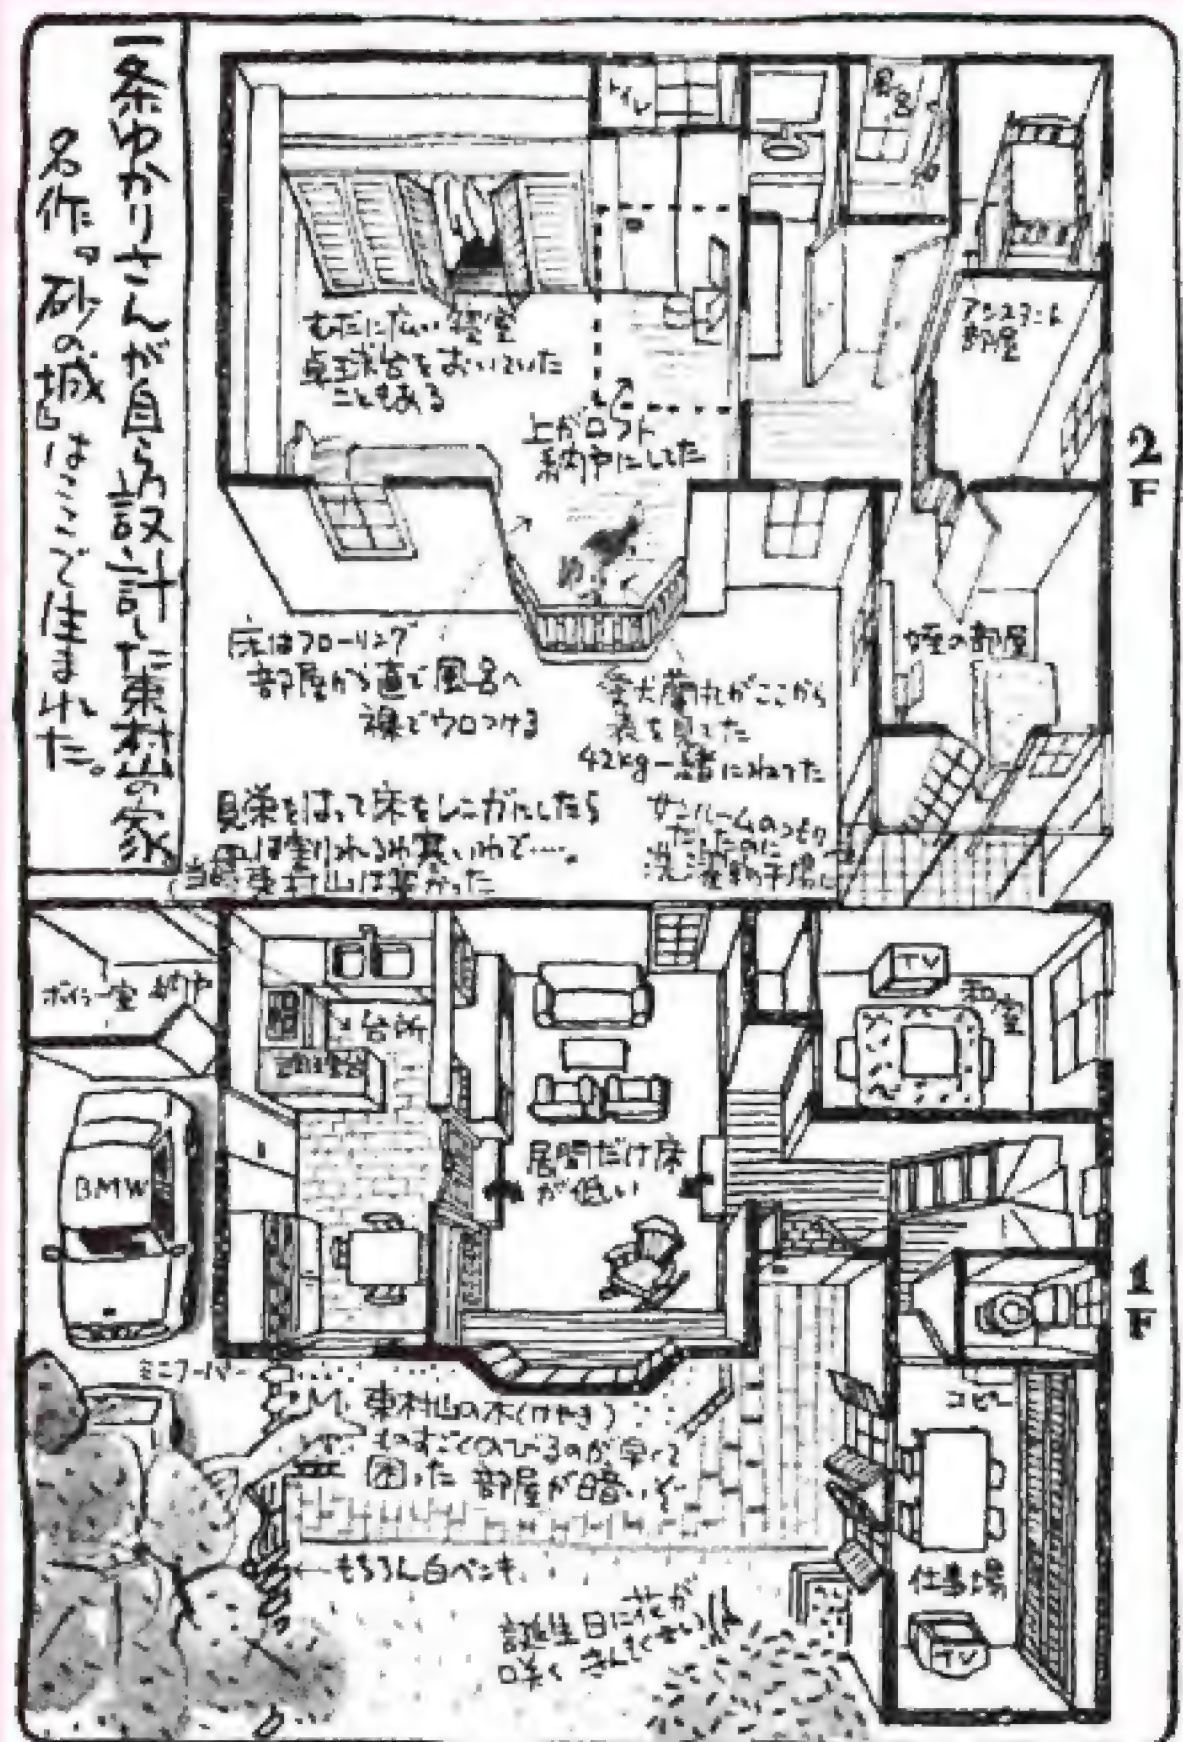 一条ゆかりさんが自ら設計した東村山の家。
名作『砂の城』はここで生まれた。
2F
トイレ
風呂
アシスタント
部屋
むだに広い寝室
卓球台をおいていた
こともある
上がロフト
納戸にしてた
姪の部屋
床はフローリング
部屋から直で風呂へ
裸でウロつける
愛犬蘭丸がここから
表を見てた
42kg一緒にねてた
見栄をはって床をレンガにしたら
割れるわ寒いわで…。
当時東村山は寒かった
サンルームのつもり
だったのに
洗濯物干場に
1F
ボイラー室
納戸
台所
TV
和室
BMW
居間だけ床
が低い
ミニクーパー
東村山の木(けやき)
ものすごくのびるのが早くて
困った 部屋が暗いぞ
コピー
←もちろん白ペンキ
仕事場
TV
誕生日に花が
咲く きんもくせい